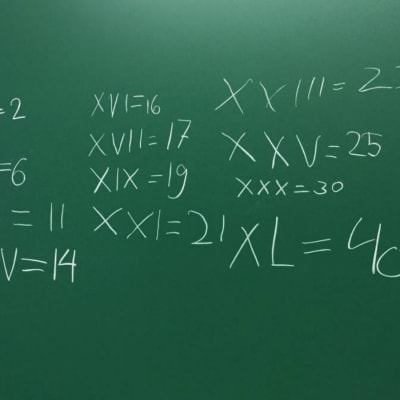 =2
=6
= 11
V=14
XVI=16
XVII=17
XIX=19
XXI=21
XXIII=23
XXV=25
XXX=30
XL=40